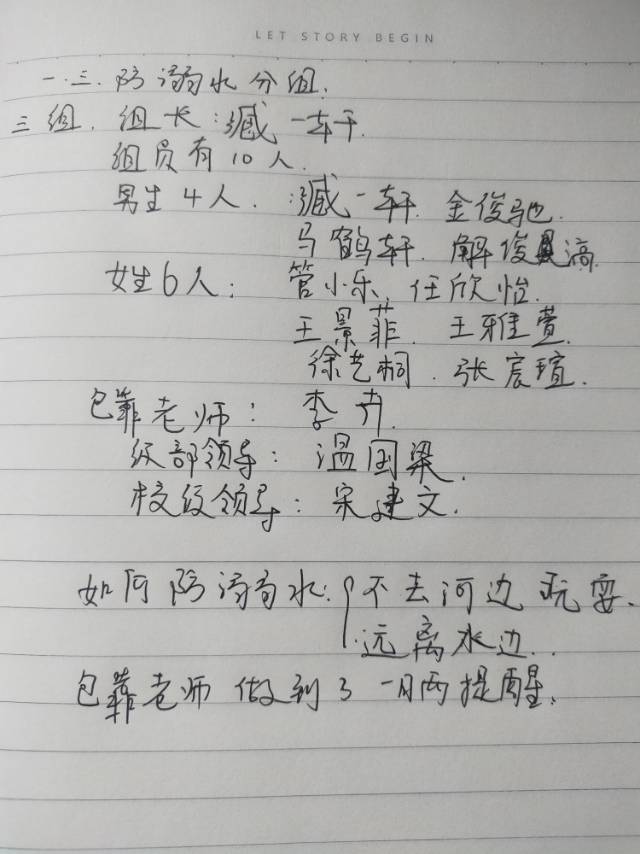 LET STORY BEGIN
一.三.防溺水分组.
三组. 组长:臧一轩.
组员有10人.
男生4人. :臧一轩. 金俊驰.
马鹤轩. 解俊滈.
女生6人: 管小乐. 任欣怡.
王景菲. 王雅萱.
徐艺桐. 张宸瑄.
包靠老师: 李卉.
级部领导: 温国梁.
校级领导: 宋建文.
如何防溺水:不去河边玩耍.
远离水边..
包靠老师做到了一日两提醒.